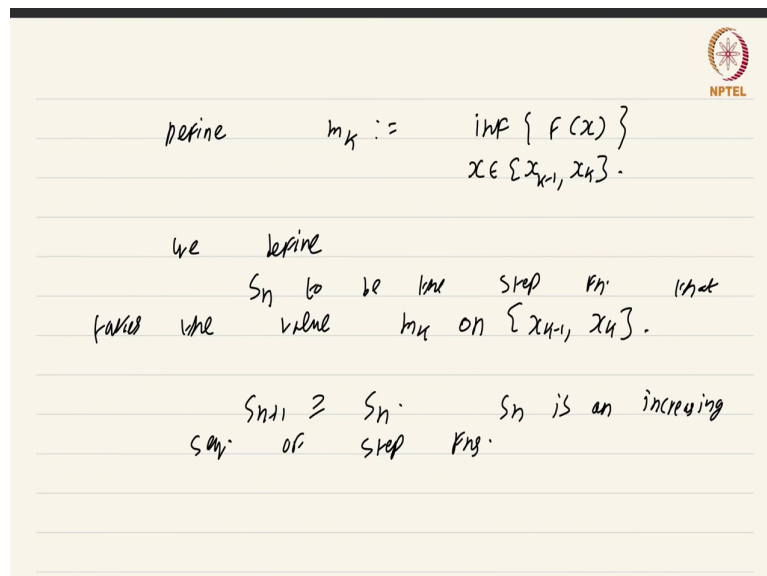 NPTEL
Define m_k := inf { F(x) }
x ∈ [x_{k-1}, x_k].
we define
S_n to be the step fn. that
takes the value m_k on [x_{k-1}, x_k].
S_{n+1} ≥ S_n. S_n is an increasing
seq. of step fns.